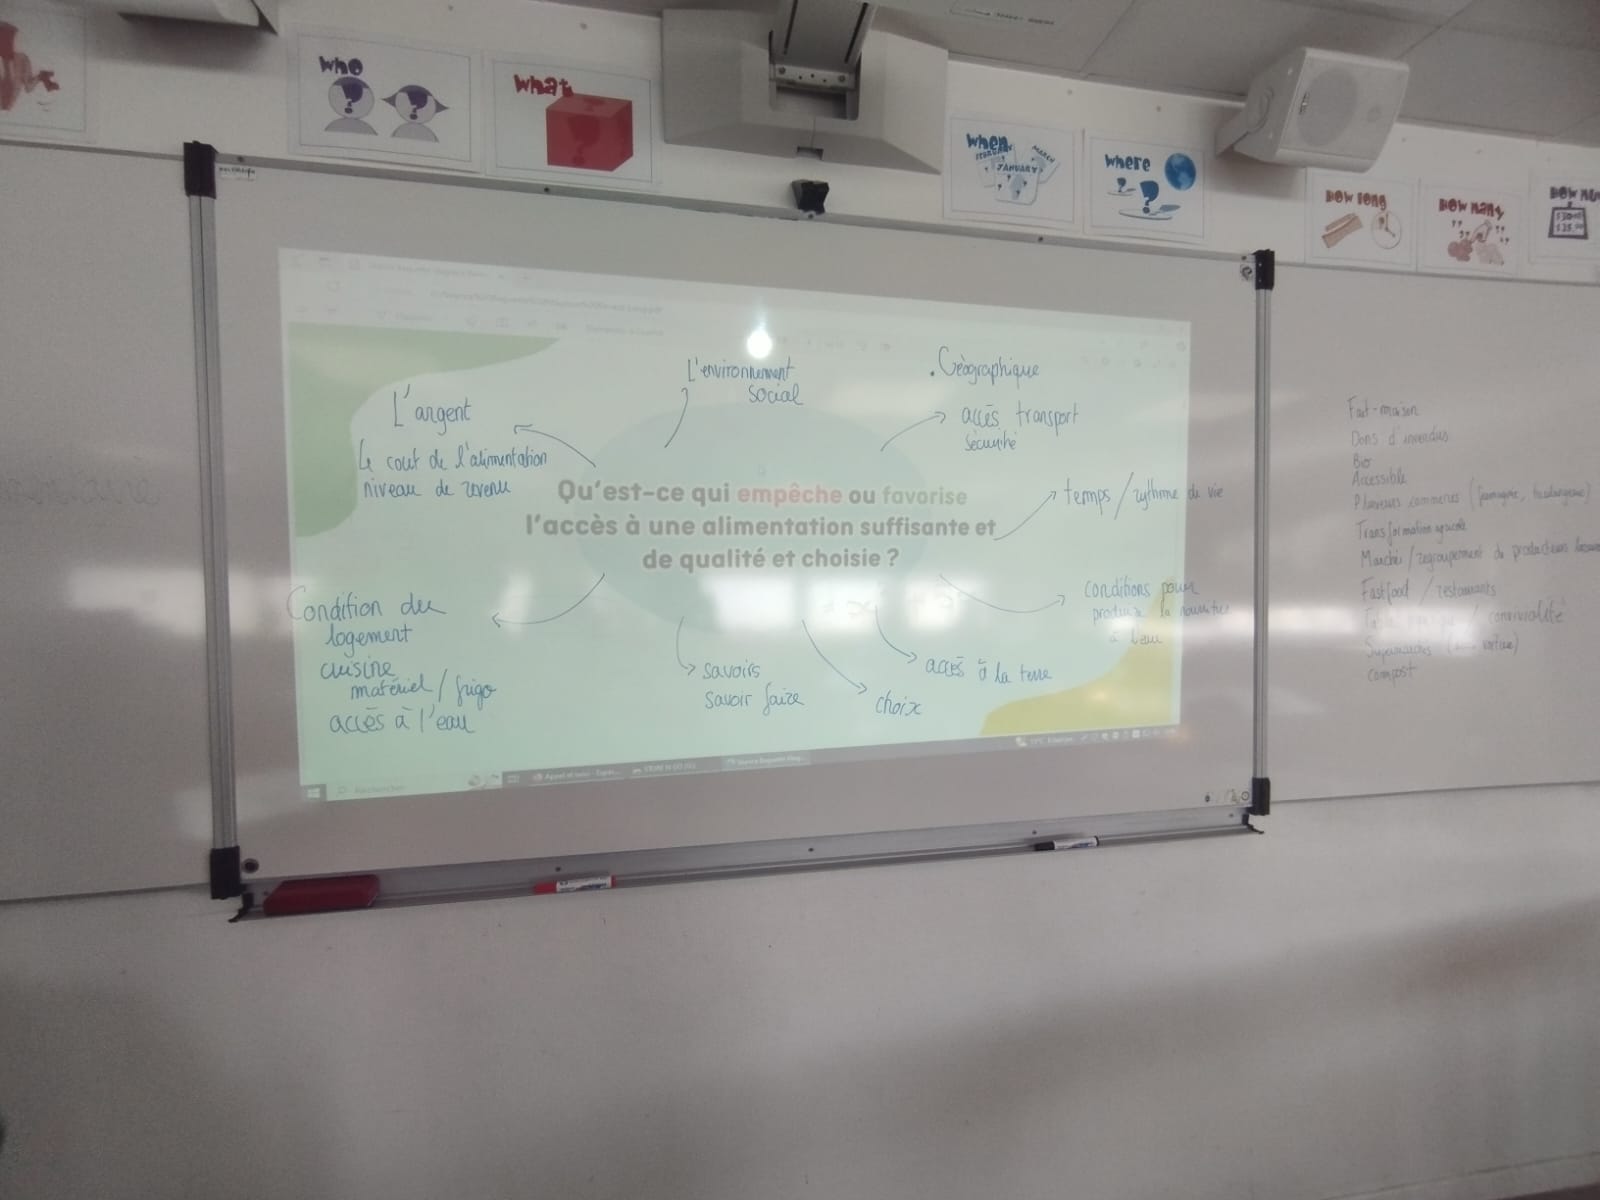 WHO
WHAT
WHEN
FEBRUARY
MARCH
JANUARY
WHERE
HOW LONG
HOW MANY
L'environnement
social
. Géographique
accès transport
sécurité
L'argent
le cout de l'alimentation
niveau de revenu
Qu'est-ce qui empêche ou favorise
l'accès à une alimentation suffisante et
de qualité et choisie ?
temps / rythme de vie
Condition du
logement
cuisine
matériel / frigo
accès à l'eau
savoirs
savoir faire
choix
accès à la terre
conditions pour
produire la nourriture
à l'eau
Rechercher
Fait-maison
Dons d'invendus
Bio
Accessible
Plusieurs commerces (fromagerie, boulangerie)
Transformation agricole
Marchés / regroupement de producteurs
Fastfood / restaurants
/ convivialité
Supermarchés ( voiture)
compost